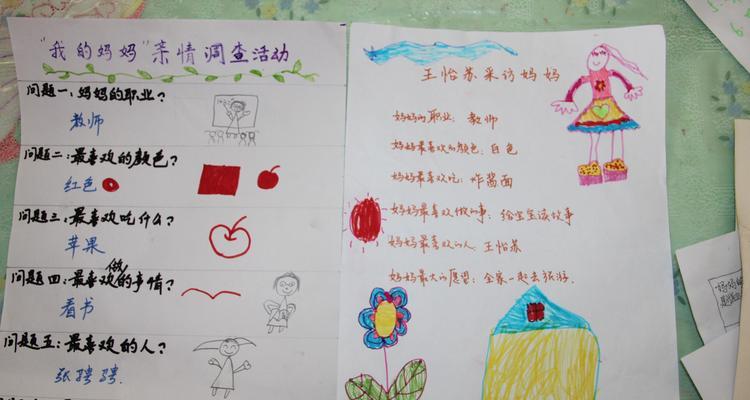 "我的妈妈"亲情调查活动
问题一：妈妈的职业？
教师
问题二：最喜欢的颜色？
红色
问题三：最喜欢吃什么？
苹果
问题四：最喜欢做的事情？
看书
问题五：最喜欢的人？
张骋骋
王怡苏采访妈妈
妈妈的职业：教师
妈妈最喜欢的颜色：白色
妈妈最喜欢吃：炸酱面
妈妈最喜欢做的事：给宝宝读故事
妈妈最喜欢的人：王怡苏
妈妈最大的愿望：全家一起去旅游.
妈妈的